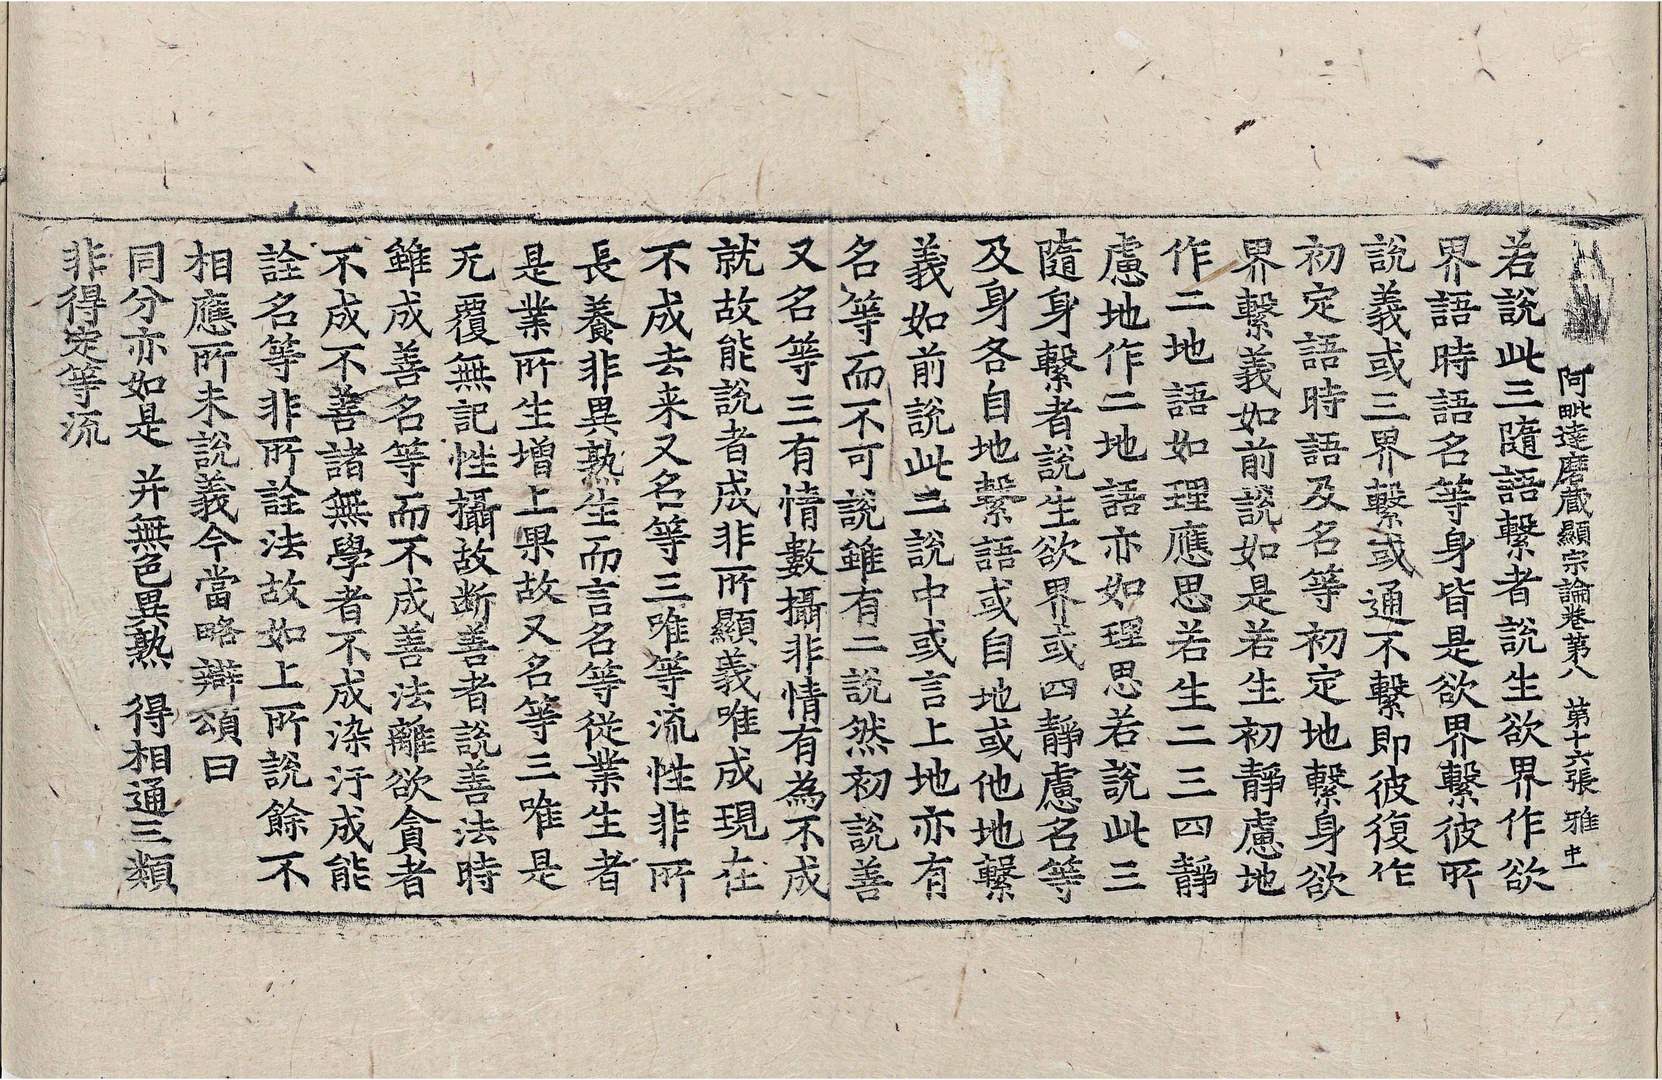 阿毗達磨蔵顯宗論卷第八 第十六張 雅
若說此三隨語繫者說生欲界作欲
界語時語名等身皆是欲界繫彼所
說義或三界繫或通不繫即彼復作
初定語時語及名等初定地繫身欲
界繫義如前說如是若生初靜慮地
作二地語如理應思若生二三四靜
慮地作二地語亦如理思若說此三
隨身繫者說生欲界或四靜慮名等
及身各自地繫語或自地或他地繫
義如前說此二說中或言上地亦有
名等而不可說雖有二說然初說善
又名等三有情數攝非情有為不成
就故能說者成非所顯義唯成現在
不成去来又名等三唯等流性非所
長養非異熟生而言名等從業生者
是業所生增上果故又名等三唯是
无覆無記性攝故断善者說善法時
雖成善名等而不成善法離欲貪者
不成不善諸無學者不成染汙成能
詮名等非所詮法故如上所說餘不
相應所未說義今當略辯頌曰
同分亦如是 并無色異熟 得相通三類
非得定等流